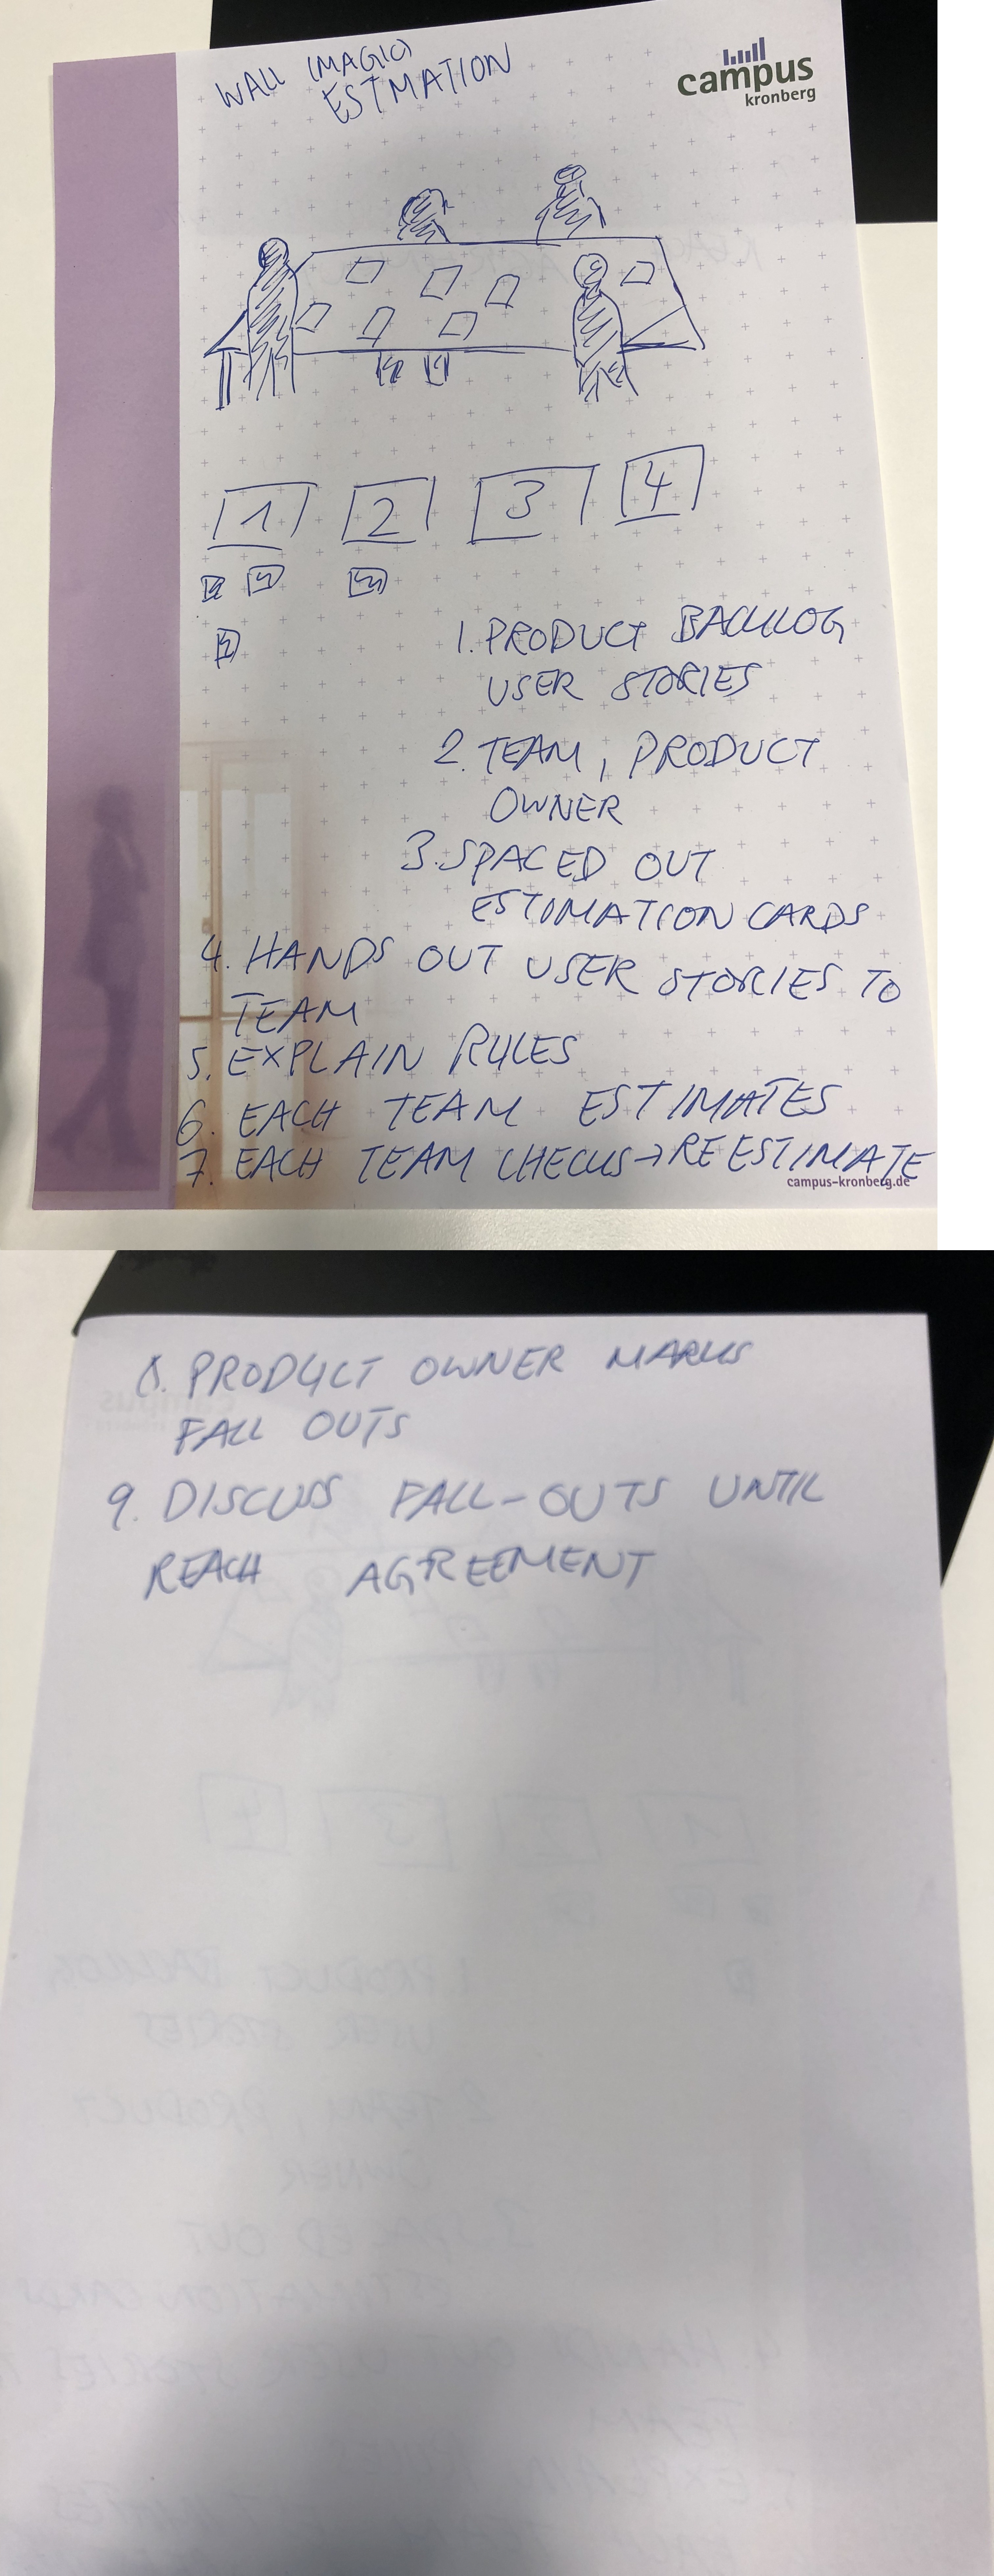 WALL (MAGIC)
ESTMATION
campus
kronberg
1 2 3 4
1. PRODUCT BACKLOG
USER STORIES
2. TEAM, PRODUCT
OWNER
3. SPACED OUT
ESTIMATION CARDS
4. HANDS OUT USER STORIES TO
TEAM
5. EXPLAIN RULES
6. EACH TEAM ESTIMATES
7. EACH TEAM CHECKS → REESTIMATE
campus-kronberg.de
8. PRODUCT OWNER MARKS
FALL OUTS
9. DISCUSS FALL-OUTS UNTIL
REACH AGREEMENT